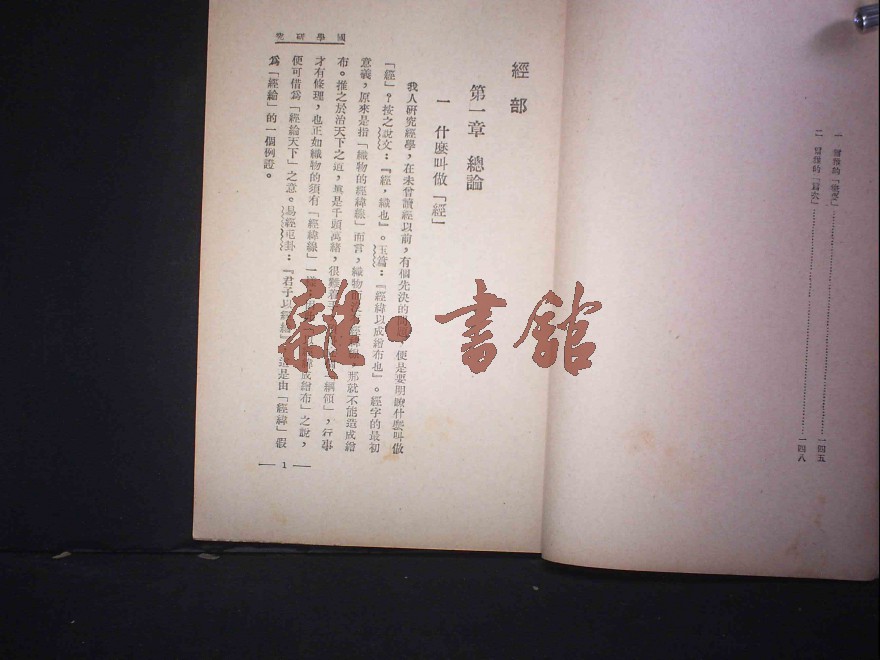 一 爾雅的「 」……一四五
二 爾雅的「篇次」……一四八
經部
第一章 總論
一 什麼叫做「經」
我人研究經學，在未曾讀經以前，有個先決的 便是要明瞭什麼叫做
「經」？按之說文：『經，織也』。玉篇：『經緯以成繒布也』。經字的最初
意義，原來是指「織物的經緯線」而言，織物 經緯 那就不能造成繒
布。推之於治天下之道，眞是千頭萬緒，很難 綱領」，行事
才有條理，也正如織物的須有「經緯線」一樣 成繒布」之說，
便可借爲「經綸天下」之意。易經屯卦：『君子以經綸 這是由「經緯」假
爲「經綸」的一個例證。
國學研究
— 1 —
雜·書館